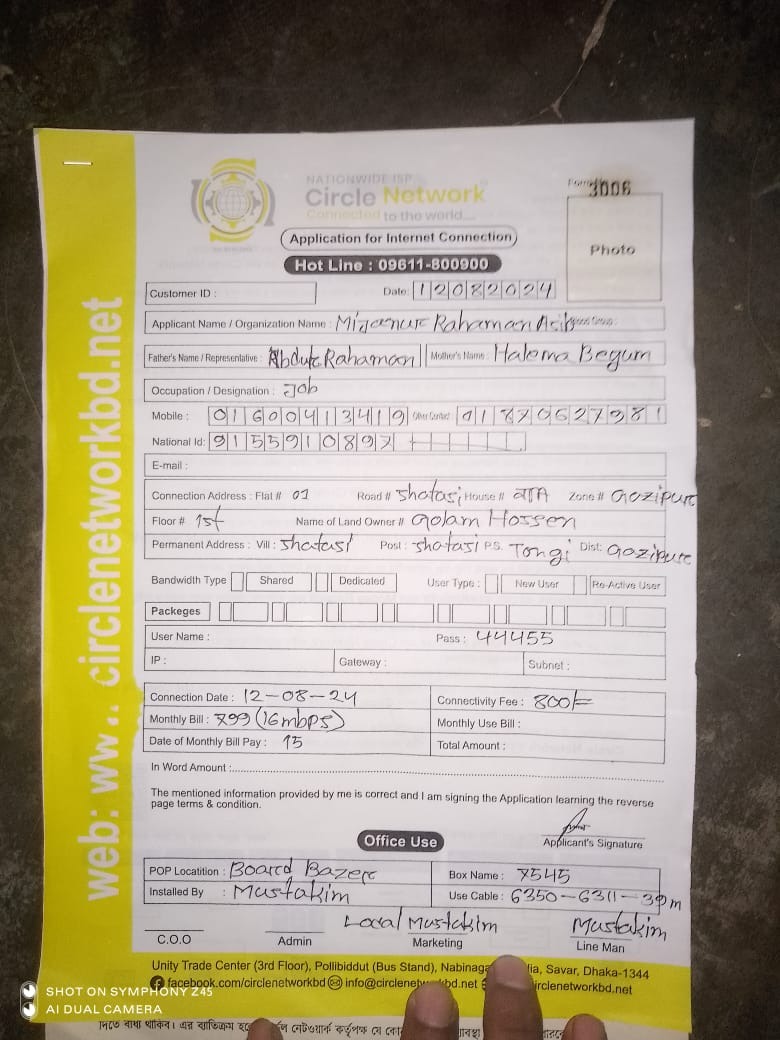 NATIONWIDE ISP
Circle Network
Connected to the world....
3006
Photo
Application for Internet Connection
Hot Line : 09611-800900
Customer ID :
Date: 12082024
Applicant Name / Organization Name : Mizanur Rahaman Asik
Father's Name / Representative : Abdur Rahaman Mother's Name : Halema Begum
Occupation / Designation : Job
Mobile : 01600413419 Other Contact 01870627981
National Id: 9155910897
E-mail :
Connection Address : Flat # 01 Road # Shatasi House # Zone # Gazipur
Floor # 1st Name of Land Owner # Golam Hossen
Permanent Address : Vill : Shatasi Post : Shatasi P.S. Tongi Dist: Gazipur
Bandwidth Type Shared Dedicated User Type : New User Re-Active User
Packeges
User Name : Pass : 44455
IP : Gateway : Subnet :
Connection Date : 12-08-24 Connectivity Fee : 800/=
Monthly Bill : 799 (16mbps) Monthly Use Bill :
Date of Monthly Bill Pay : 15 Total Amount :
In Word Amount :
The mentioned information provided by me is correct and I am signing the Application learning the reverse
page terms & condition.
Applicant's Signature
Office Use
POP Locatition : Board Bazer Box Name : 7545
Installed By : Mustakim Use Cable : 6350-6311-39m
Local Mustakim Mustakim
C.O.O Admin Marketing Line Man
Unity Trade Center (3rd Floor), Pollibiddut (Bus Stand), Savar, Dhaka-1344
facebook.com/circlenetworkbd
web: circlenetworkbd.net
SHOT ON SYMPHONY Z45
AI DUAL CAMERA